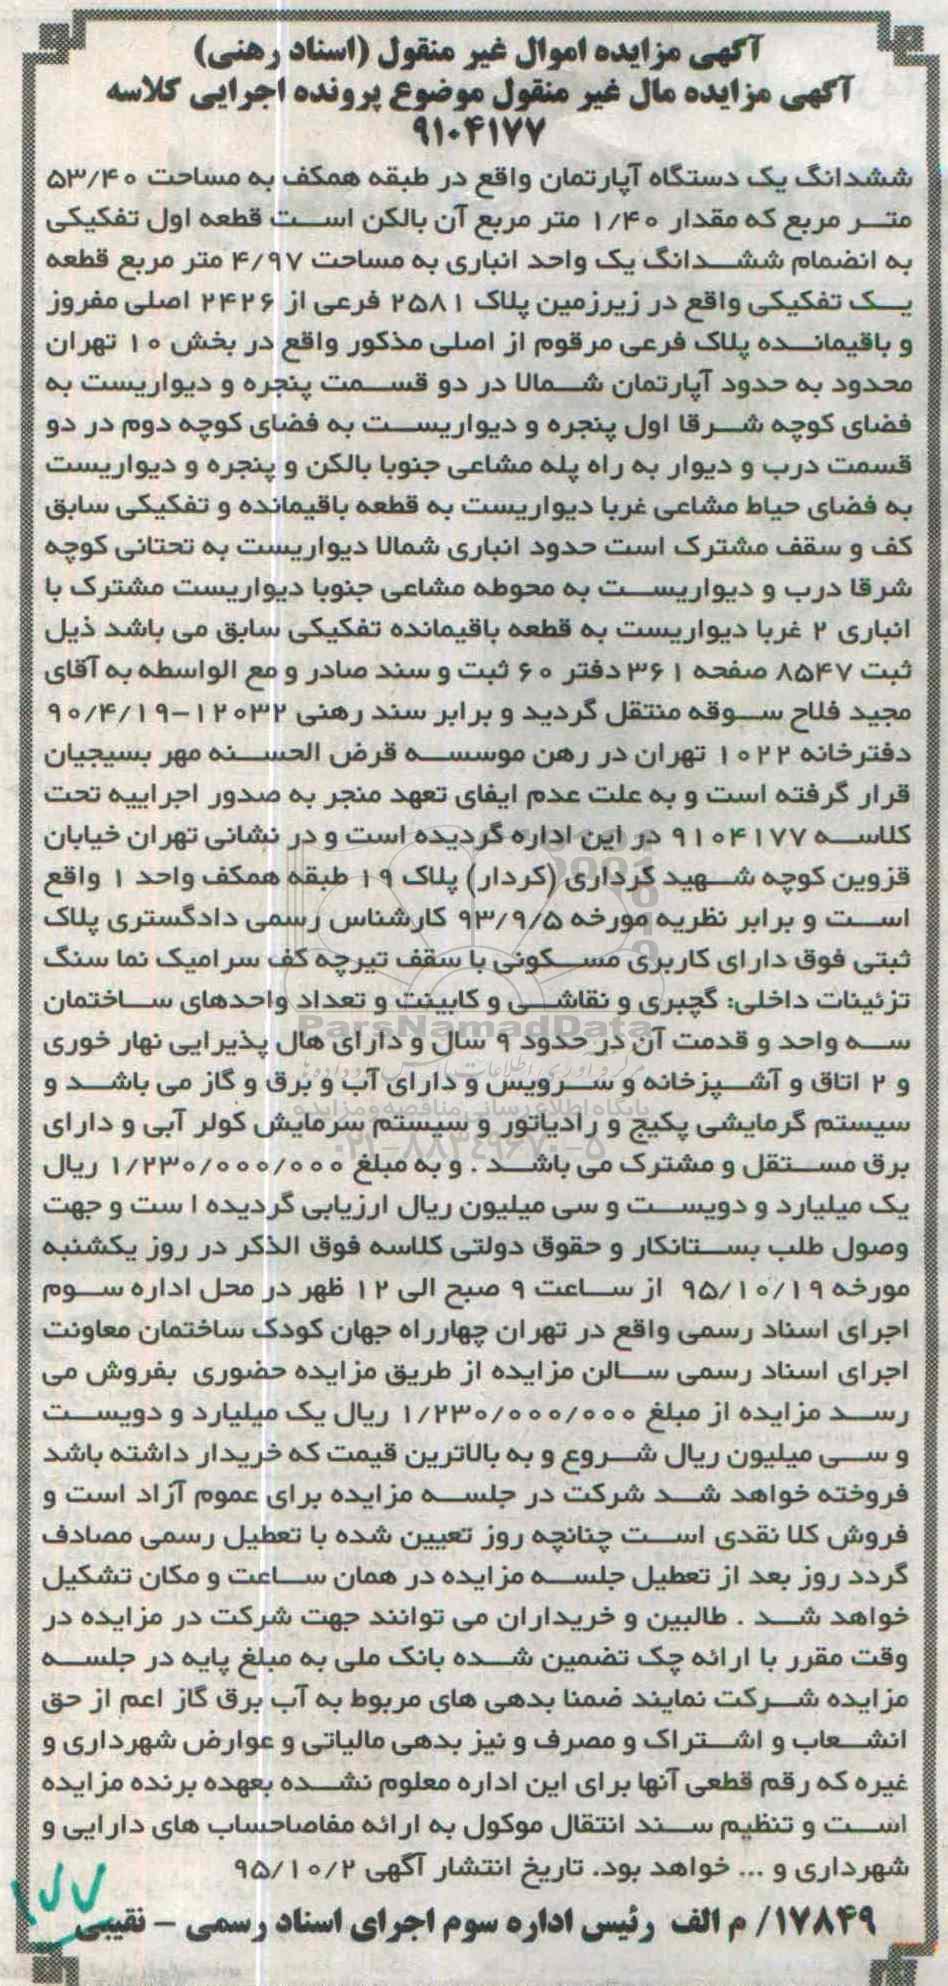 آگهی مزایده اموال غیر منقول (اسناد رهنی)
آگهی مزایده مال غیر منقول موضوع پرونده اجرایی کلاسه
۹۱۰۴۱۷۷
ششدانگ یک دستگاه آپارتمان واقع در طبقه همکف به مساحت ۵۳/۴۰
متر مربع که مقدار ۱/۴۰ متر مربع آن بالکن است قطعه اول تفکیکی
به انضمام ششدانگ یک واحد انباری به مساحت ۴/۹۷ متر مربع قطعه
یک تفکیکی واقع در زیرزمین پلاک ۲۵۸۱ فرعی از ۲۴۲۶ اصلی مفروز
و باقیمانده پلاک فرعی مرقوم از اصلی مذکور واقع در بخش ۱۰ تهران
محدود به حدود آپارتمان شمالا در دو قسمت پنجره و دیواریست به
فضای کوچه شرقا اول پنجره و دیواریست به فضای کوچه دوم در دو
قسمت درب و دیوار به راه پله مشاعی جنوبا بالکن و پنجره و دیواریست
به فضای حیاط مشاعی غربا دیواریست به قطعه باقیمانده و تفکیکی سابق
کف و سقف مشترک است حدود انباری شمالا دیواریست به تحتانی کوچه
شرقا درب و دیواریست به محوطه مشاعی جنوبا دیواریست مشترک با
انباری ۲ غربا دیواریست به قطعه باقیمانده تفکیکی سابق می باشد ذیل
ثبت ۸۵۴۷ صفحه ۳۶۱ دفتر ۶۰ ثبت و سند صادر و مع الواسطه به آقای
مجید فلاح سوقه منتقل گردید و برابر سند رهنی ۱۲۰۳۲-۹۰/۴/۱۹
دفترخانه ۱۰۲۲ تهران در رهن موسسه قرض الحسنه مهر بسیجیان
قرار گرفته است و به علت عدم ایفای تعهد منجر به صدور اجراییه تحت
کلاسه ۹۱۰۴۱۷۷ در این اداره گردیده است و در نشانی تهران خیابان
قزوین کوچه شهید کرداری (کردار) پلاک ۱۹ طبقه همکف واحد ۱ واقع
است و برابر نظریه مورخه ۹۳/۹/۵ کارشناس رسمی دادگستری پلاک
ثبتی فوق دارای کاربری مسکونی با سقف تیرچه کف سرامیک نما سنگ
تزئینات داخلی: گچبری و نقاشی و کابینت و تعداد واحدهای ساختمان
سه واحد و قدمت آن در حدود ۹ سال و دارای هال پذیرایی نهار خوری
و ۲ اتاق و آشپزخانه و سرویس و دارای آب و برق و گاز می باشد و
سیستم گرمایشی پکیج و رادیاتور و سیستم سرمایش کولر آبی و دارای
برق مستقل و مشترک می باشد . و به مبلغ ۱/۲۳۰/۰۰۰/۰۰۰ ریال
یک میلیارد و دویست و سی میلیون ریال ارزیابی گردیده ا ست و جهت
وصول طلب بستانکار و حقوق دولتی کلاسه فوق الذکر در روز یکشنبه
مورخه ۹۵/۱۰/۱۹ از ساعت ۹ صبح الی ۱۲ ظهر در محل اداره سوم
اجرای اسناد رسمی واقع در تهران چهارراه جهان کودک ساختمان معاونت
اجرای اسناد رسمی سالن مزایده از طریق مزایده حضوری بفروش می
رسد مزایده از مبلغ ۱/۲۳۰/۰۰۰/۰۰۰ ریال یک میلیارد و دویست
و سی میلیون ریال شروع و به بالاترین قیمت که خریدار داشته باشد
فروخته خواهد شد شرکت در جلسه مزایده برای عموم آزاد است و
فروش کلا نقدی است چنانچه روز تعیین شده با تعطیل رسمی مصادف
گردد روز بعد از تعطیل جلسه مزایده در همان ساعت و مکان تشکیل
خواهد شد . طالبین و خریداران می توانند جهت شرکت در مزایده در
وقت مقرر با ارائه چک تضمین شده بانک ملی به مبلغ پایه در جلسه
مزایده شرکت نمایند ضمنا بدهی های مربوط به آب برق گاز اعم از حق
انشعاب و اشتراک و مصرف و نیز بدهی مالیاتی و عوارض شهرداری و
غیره که رقم قطعی آنها برای این اداره معلوم نشده بعهده برنده مزایده
است و تنظیم سند انتقال موکول به ارائه مفاصاحساب های دارایی و
شهرداری و ... خواهد بود. تاریخ انتشار آگهی ۹۵/۱۰/۲
۱۷۸۴۹/ م الف رئیس اداره سوم اجرای اسناد رسمی - نقیبی
ParsNamadData
پایگاه اطلاع رسانی مناقصه و مزایده
۰۲۱-۸۸۳۴۹۶۷۰-۵